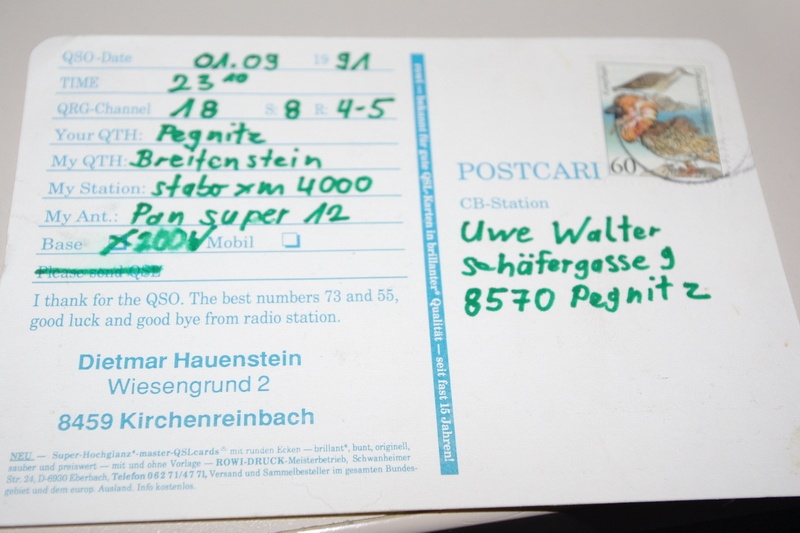 QSO-Date 01.09 1991
TIME 23 10
QRG-Channel 18 S: 8 R: 4-5
Your QTH: Pegnitz
My QTH: Breitenstein
My Station: stabo xm 4000
My Ant.: Pan super 12
Base 200V Mobil
Please send QSL
I thank for the QSO. The best numbers 73 and 55,
good luck and good bye from radio station.
Dietmar Hauenstein
Wiesengrund 2
8459 Kirchenreinbach
NEU – Super-Hochglanz*-master-QSLcards® mit runden Ecken – brillant*, bunt, originell,
sauber und preiswert – mit und ohne Vorlage – ROWI-DRUCK-Meisterbetrieb, Schwanheimer
Str. 24, D-6930 Eberbach, Telefon 06271/4771, Versand und Sammelbesteller im gesamten Bundes-
gebiet und dem europ. Ausland. Info kostenlos.
rowi – bekannt für gute QSL-Karten in brillanter* Qualität – seit fast 15 Jahren!
60
POSTCARD
CB-Station
Uwe Walter
Schäfergasse 9
8570 Pegnitz